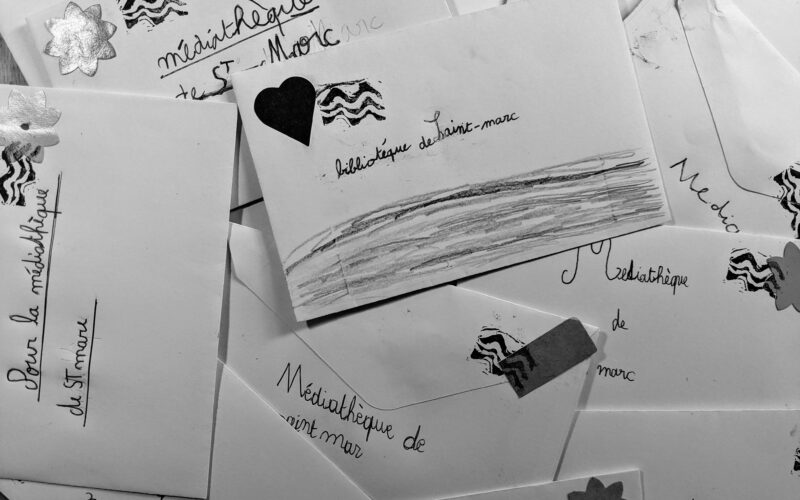 médiathèque
de ST Marc
bibliotéque de Saint-marc
Pour la médiathèque
de ST marc
Medic
Mediathèque
de
marc
Médiathèque de
aint mar